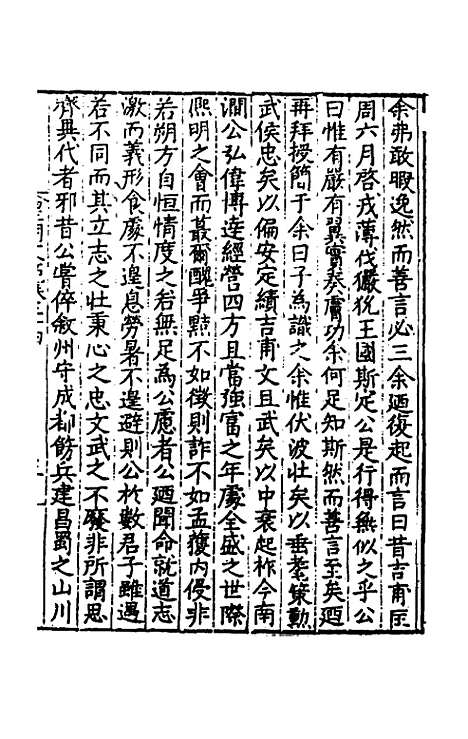 余弗敢暇逸然而善言必三余廼復起而言曰昔吉甫臣
周六月啓戎薄伐玁狁王國斯定公是行得無似之乎公
曰惟有嚴有翼實奏膚功余何足知斯然而善言至矣廼
再拜授簡于余曰子為識之余惟伏波壯矣以垂耄策勲
武侯忠矣以偏安定績吉甫文且武矣以中衰起祚今南
澗公弘偉博達經營四方且當強富之年處全盛之世際
熈明之會而蕞爾醜爭黠不如徴則詐不如孟獲內侵非
若朔方自恒情度之若無足為公慮者公廼聞命就道志
激而義形食處不遑息勞暑不遑避則公於數君子雖遇
若不同而其立志之壯秉心之忠文武之不廢非所謂思
齊異代者邪昔公嘗倅敘州守成都飭兵建昌蜀之山川